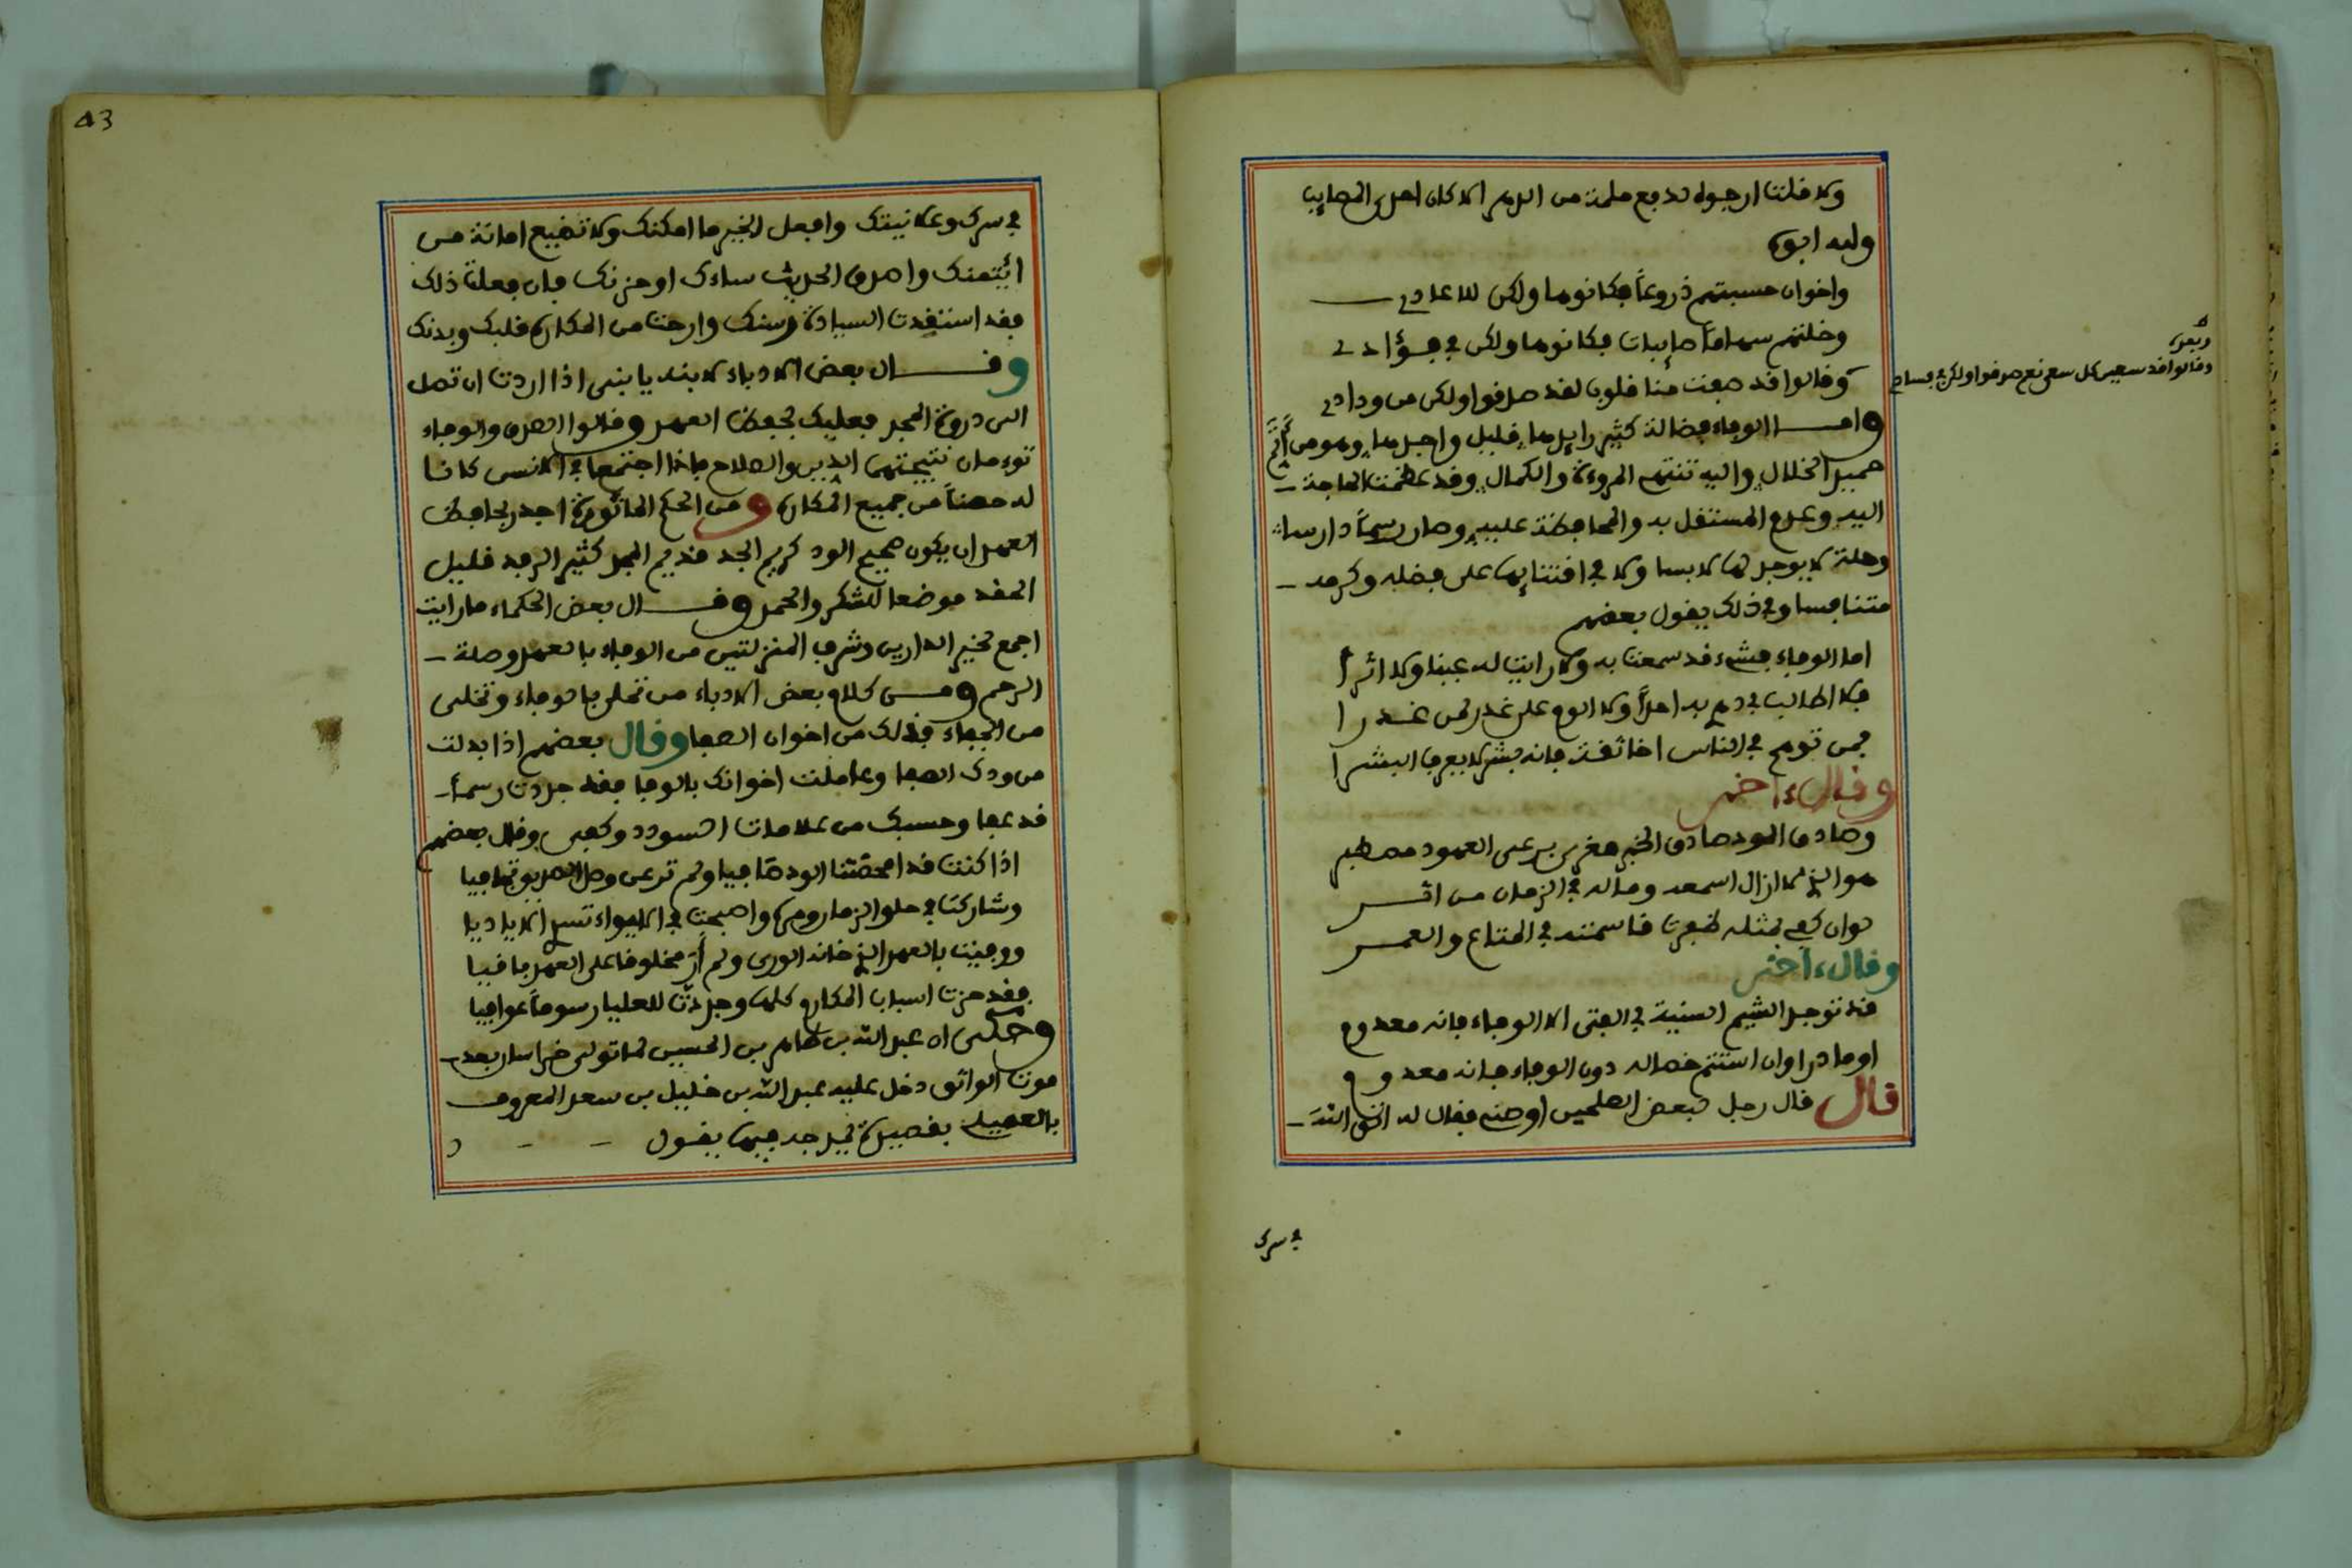 ولا فلت ارجوه لدفع ملمة من الدهر الا كان احدى المصايب
وله ايضا
واخوان حسبتهم ذروعاً فكانوها ولكن للاعادي
وخلتهم سهاماً صايبات فكانوها ولكن في فؤادي
وقالوا قد صفت منا قلوب لقد صدقوا ولكن من ودادي
وبعده
وقالوا قد سعينا كل سعي نعم صدقوا ولكن في فسادي
واما الوفاء فضالة كثير رايدها قليل واجدها وهو من اتم
جميل الخلال واليه تنتهي المروءة والكمال وقد عظمت الحاجة
اليه وعدم المستقل به والمحافظة عليه وصار رسماً دارسا
وحلة لا يوجد لها لابسا ولا في اقتنايها على فضله وكرمه
متنافسا وفي ذلك يقول بعضهم
اما الوفاء فشيء قد سمعت به ولا رايت له عينا ولا اثرا
فلا اطالب في دهري به احداً ولا الوم على غدر لمن غدرا
فمن توهم في الناس اخا ثقة فانه بشر لا يعرف البشرا
وقال ءاخر
وصادق الود صادق الخبر مغرى برعى العهود مصطبر
هو الذي لا ازال اسمعه وماله في الزمان من اثر
لوان كفي بمثله ظفرت قاسمته في المتاع والعمر
وقال ءاخر
قد توجد الشيم السنية في الفتى الا الوفاء فانه معدوم
اوما درا وان استتم خصاله دون الوفاء فانه معدوم
قال قال رجل لبعض الصلحين اوصني فقال له اتق الله
في سرك
43
في سرك وعلانيتك وافعل الخير ما امكنك ولا تضيع امانة من
ائتمنك واصدق الحديث ساءك او حزنك فان فعلت ذلك
فقد استفدت السيادة وسنك وارحت من المكاره قلبك وبدنك
وقال بعض الادباء لابنه يا بني اذا اردت ان تصل
الى ذروة المجد فعليك بحفظ العهد وقالوا الصدق والوفاء
توءمان نتيجتهما الدين والصلاح فاذا اجتمعا في الانسن كانا
له حصناً من جميع المكاره ومن الحكم الماثورة اجدر بحافظ
العهد ان يكون صحيح الود كريم الجد قديم المجد كثير الرفد قليل
الحقد موضعا للشكر والحمد وقال بعض الحكماء ما رايت
اجمع لخير الدارين وشرف المنزلتين من الوفاء بالعهد وصلة
الرحم ومن كلام بعض الادباء من تحلى بالوفاء وتخلى
من الجفاء فذلك من اخوان الصفا وقال بعضهم اذا بدلت
من ودك الصفا وعاملت اخوانك بالوفا فقد جددت رسماً
قد عفا وحسبك من علامات السودد وكفى وقال بعضهم
اذا كنت قد امحضتنا الود صافيا ولم ترعى وصل العهد بوقت جافيا
وشاركت في حلو الزمان ومره واصبحت في اللاواء تسدي الاياديا
ووفيت بالعهد الذي خانه الورى ولم أر مخلوقا على العهد باقيا
فقد حزت اسباب المكارم كلها وجددت للعليا رسوماً عوافيا
وحكى ان عبد الله بن طاهر بن الحسين لما تولى خراسان بعد
موت الواثق دخل عليه عبد الله بن خليل بن سعد المعروف
بالعميلي بقصيدة يمدحه فيها يقول